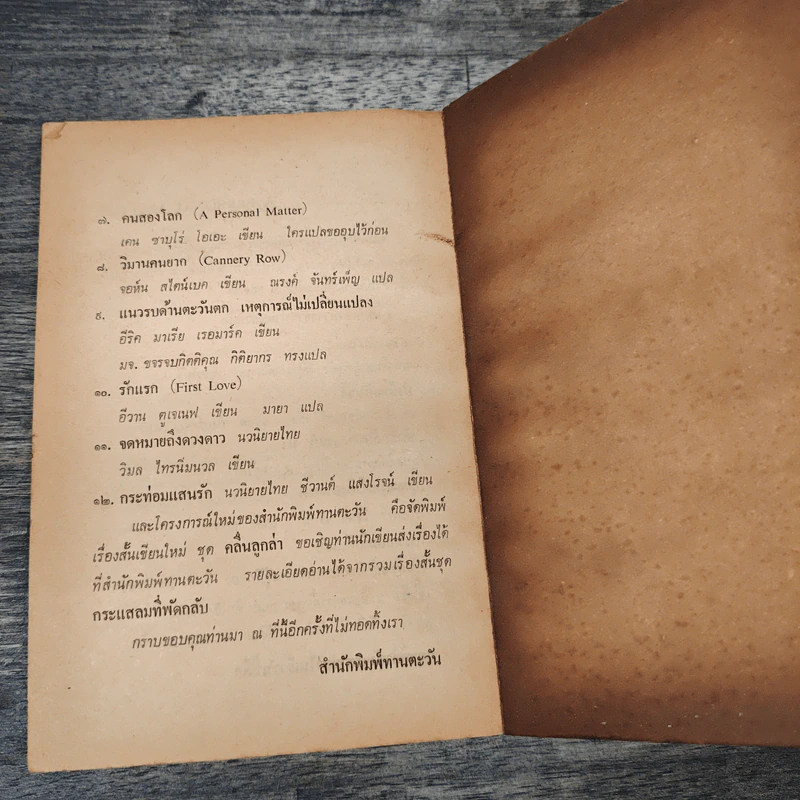 ๗. คนสองโลก (A Personal Matter)
เคน ซาบุโร่ โอเอะ เขียน ใครแปลขออุบไว้ก่อน
๘. วิมานคนยาก (Cannery Row)
จอห์น สไตน์เบค เขียน ณรงค์ จันทร์เพ็ญ แปล
๙. แนวรบด้านตะวันตก เหตุการณ์ไม่เปลี่ยนแปลง
อีริค มาเรีย เรอมาร์ค เขียน
มจ. ขจรจบกิตติคุณ กิติยากร ทรงแปล
๑๐. รักแรก (First Love)
อีวาน ตูเจเนฟ เขียน มายา แปล
๑๑. จดหมายถึงดวงดาว นวนิยายไทย
วิมล ไทรนิ่มนวล เขียน
๑๒. กระท่อมแสนรัก นวนิยายไทย ชีวานต์ แสงโรจน์ เขียน
และโครงการณ์ใหม่ของสำนักพิมพ์ทานตะวัน คือจัดพิมพ์
เรื่องสั้นเขียนใหม่ ชุด คลื่นลูกล่า ขอเชิญท่านนักเขียนส่งเรื่องได้
ที่สำนักพิมพ์ทานตะวัน รายละเอียดอ่านได้จากรวมเรื่องสั้นชุด
กระแสลมที่พัดกลับ
กราบขอบคุณท่านมา ณ ที่นี้อีกครั้งที่ไม่ทอดทิ้งเรา
สำนักพิมพ์ทานตะวัน